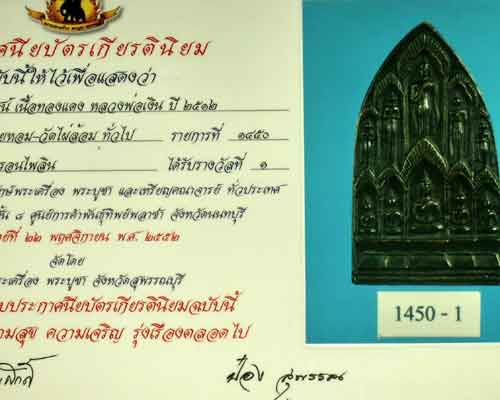 ศนียบัตรเกียรตินิยม
บับนี้ให้ไว้เพื่อแสดงว่า
เนื้อทองแดง หลวงพ่อเงิน ปี ๒๕๑๒
ยหอม-วัดไผ่ล้อม ทั่วไป รายการที่ ๑๔๕๐
รอนไพลิน ได้รับรางวัลที่ ๑
พระเครื่อง พระบูชา และเหรียญคณาจารย์ ทั่วประเทศ
ั้น ๘ ศูนย์การค้าพันธุ์ทิพย์พลาซ่า จังหวัดนนทบุรี
ที่ ๒๒ พฤศจิกายน พ.ศ. ๒๕๕๒
จัดโดย
ระเครื่อง พระบูชา จังหวัดสุพรรณบุรี
บประกาศนียบัตรเกียรตินิยมฉบับนี้
ามสุข ความเจริญ รุ่งเรืองตลอดไป
ป๋อง สุพรรณ
1450 - 1